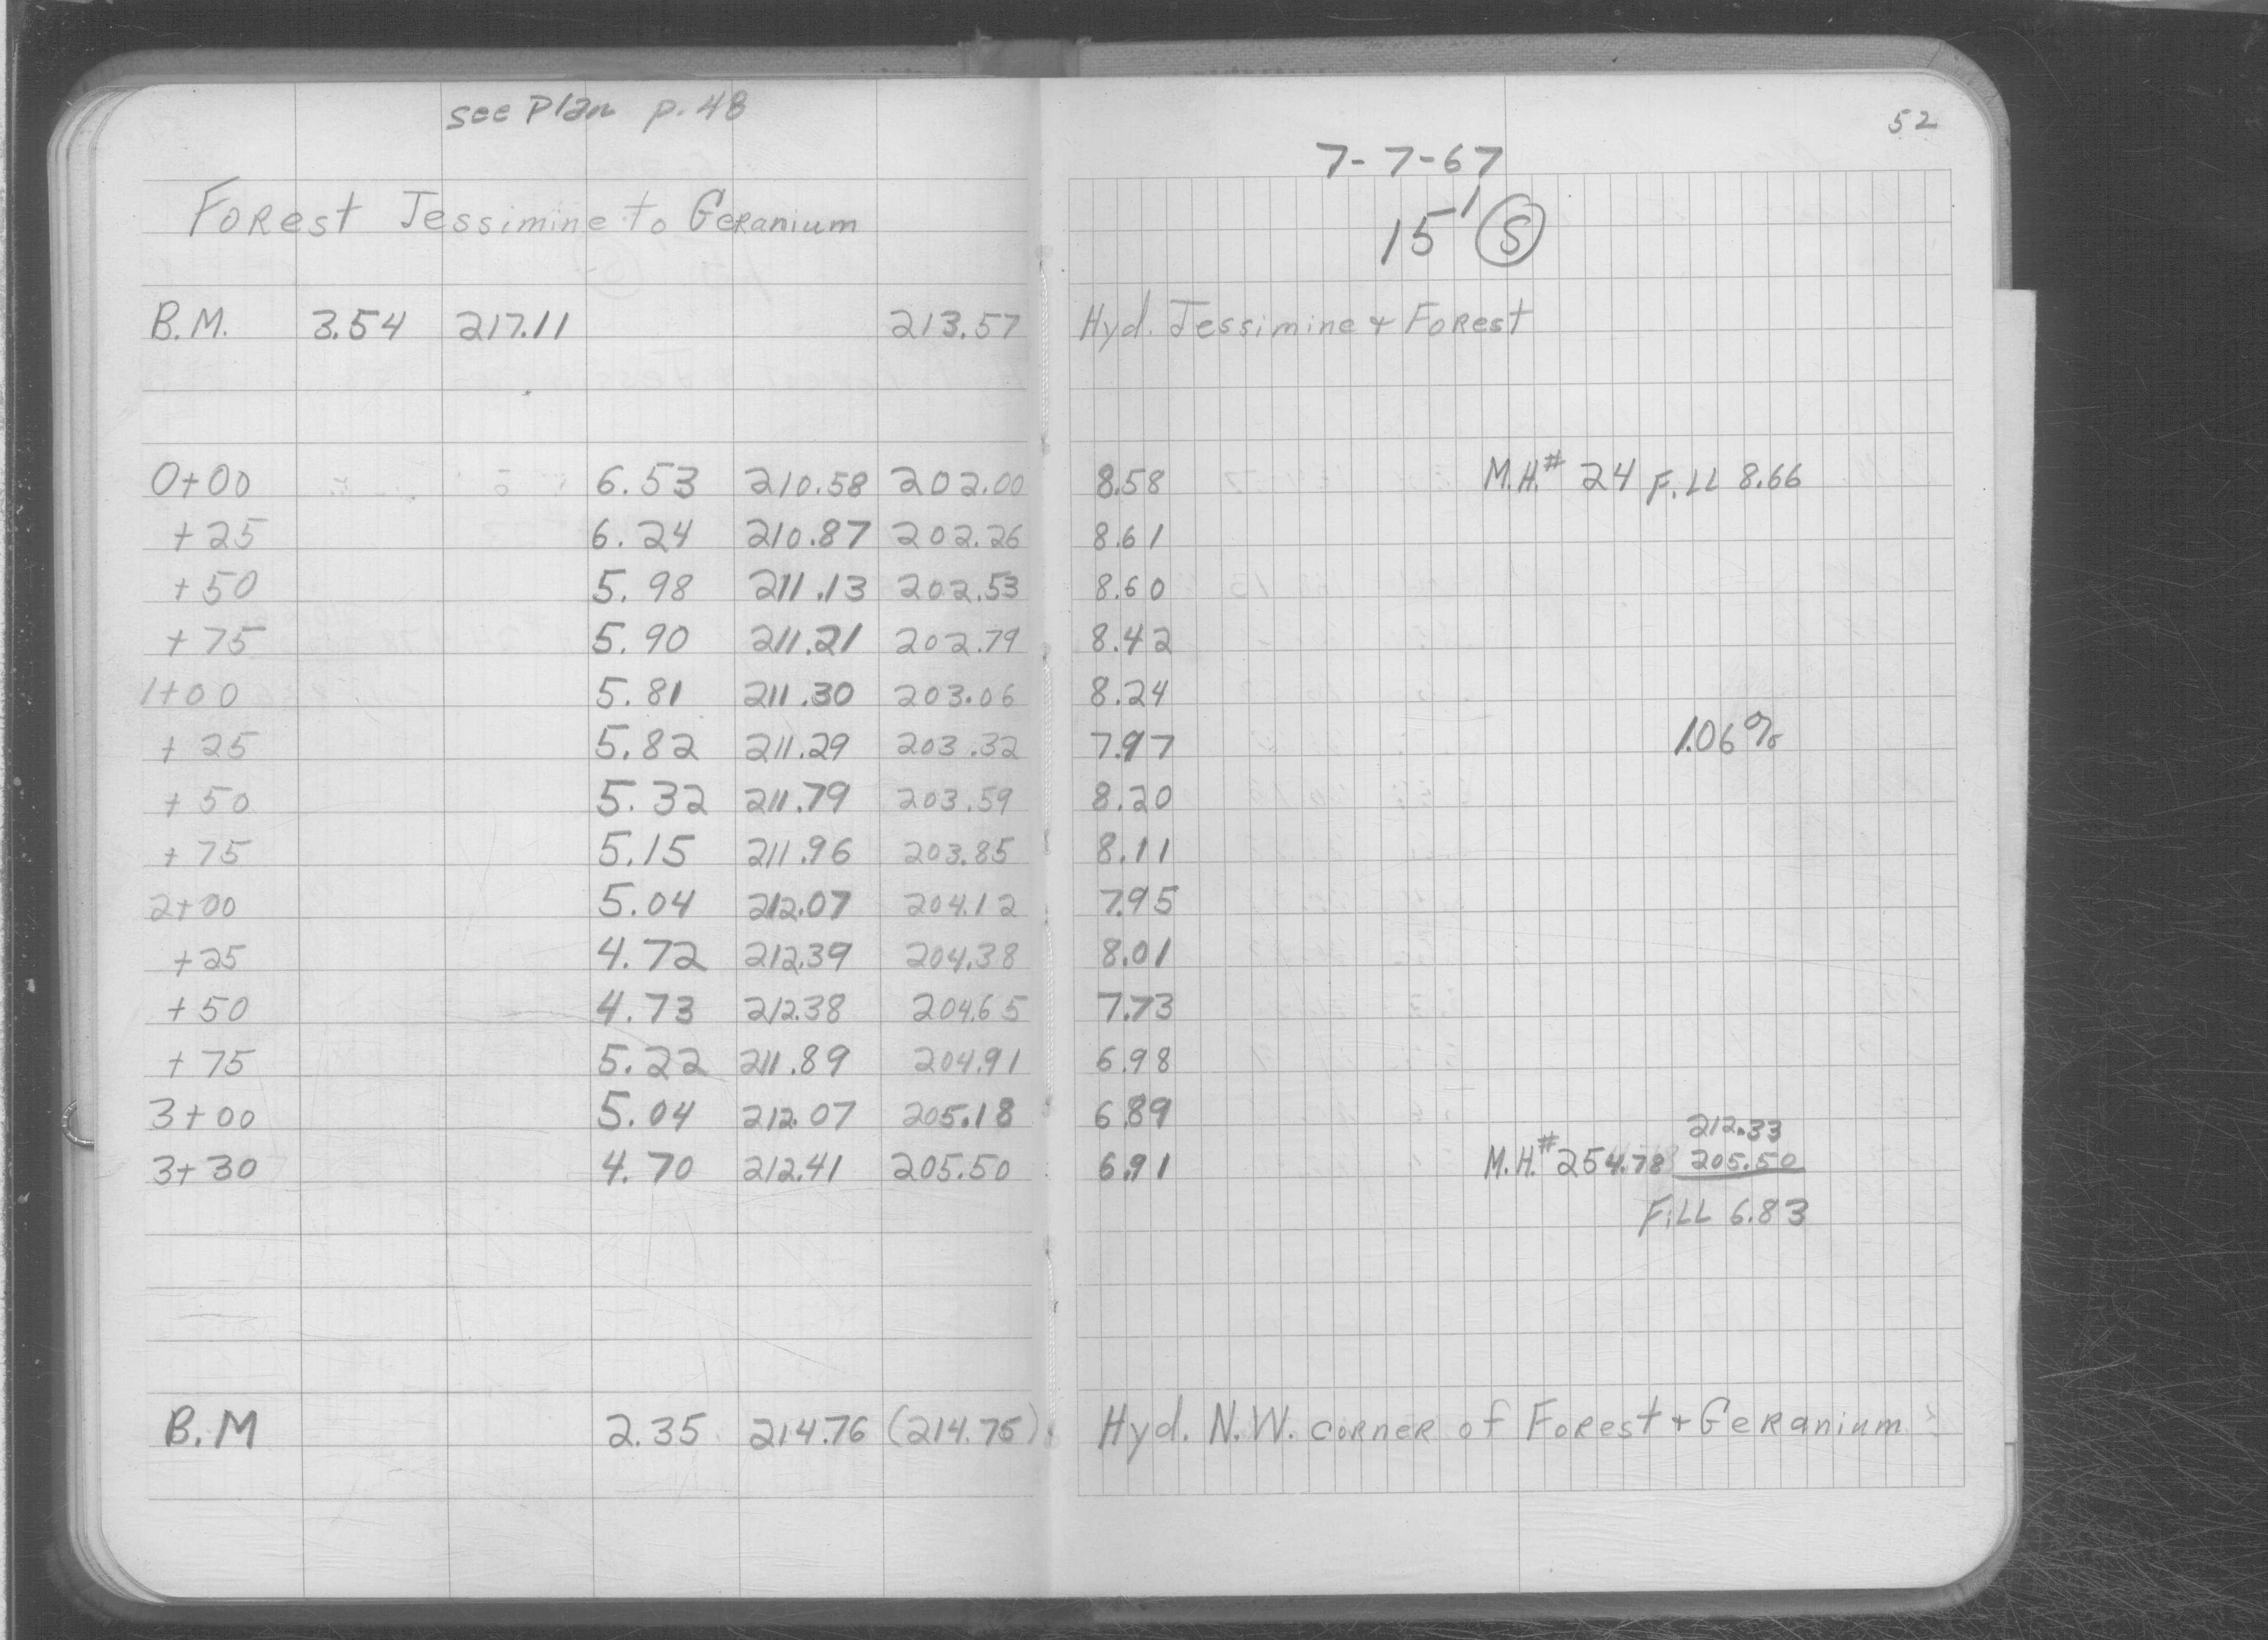 see Plan p. 48
52
7-7-67
Forest Jessimine to Geranium
15' S
B.M. 3.54 217.11 213.57 Hyd. Jessimine + Forest
0+00 6.53 210.58 202.00 8.58 M.H.# 24 FiLL 8.66
+25 6.24 210.87 202.26 8.61
+50 5.98 211.13 202.53 8.60
+75 5.90 211.21 202.79 8.42
1+00 5.81 211.30 203.06 8.24
+25 5.82 211.29 203.32 7.97
1.06%
+50 5.32 211.79 203.59 8.20
+75 5.15 211.96 203.85 8.11
2+00 5.04 212.07 204.12 7.95
+25 4.72 212.39 204.38 8.01
+50 4.73 212.38 204.65 7.73
+75 5.22 211.89 204.91 6.98
3+00 5.04 212.07 205.18 6.89 212.33
3+30 4.70 212.41 205.50 6.91 M.H.# 25 4.78 205.50
FiLL 6.83
B.M 2.35 214.76 (214.75) Hyd. N.W. corner of Forest + Geranium